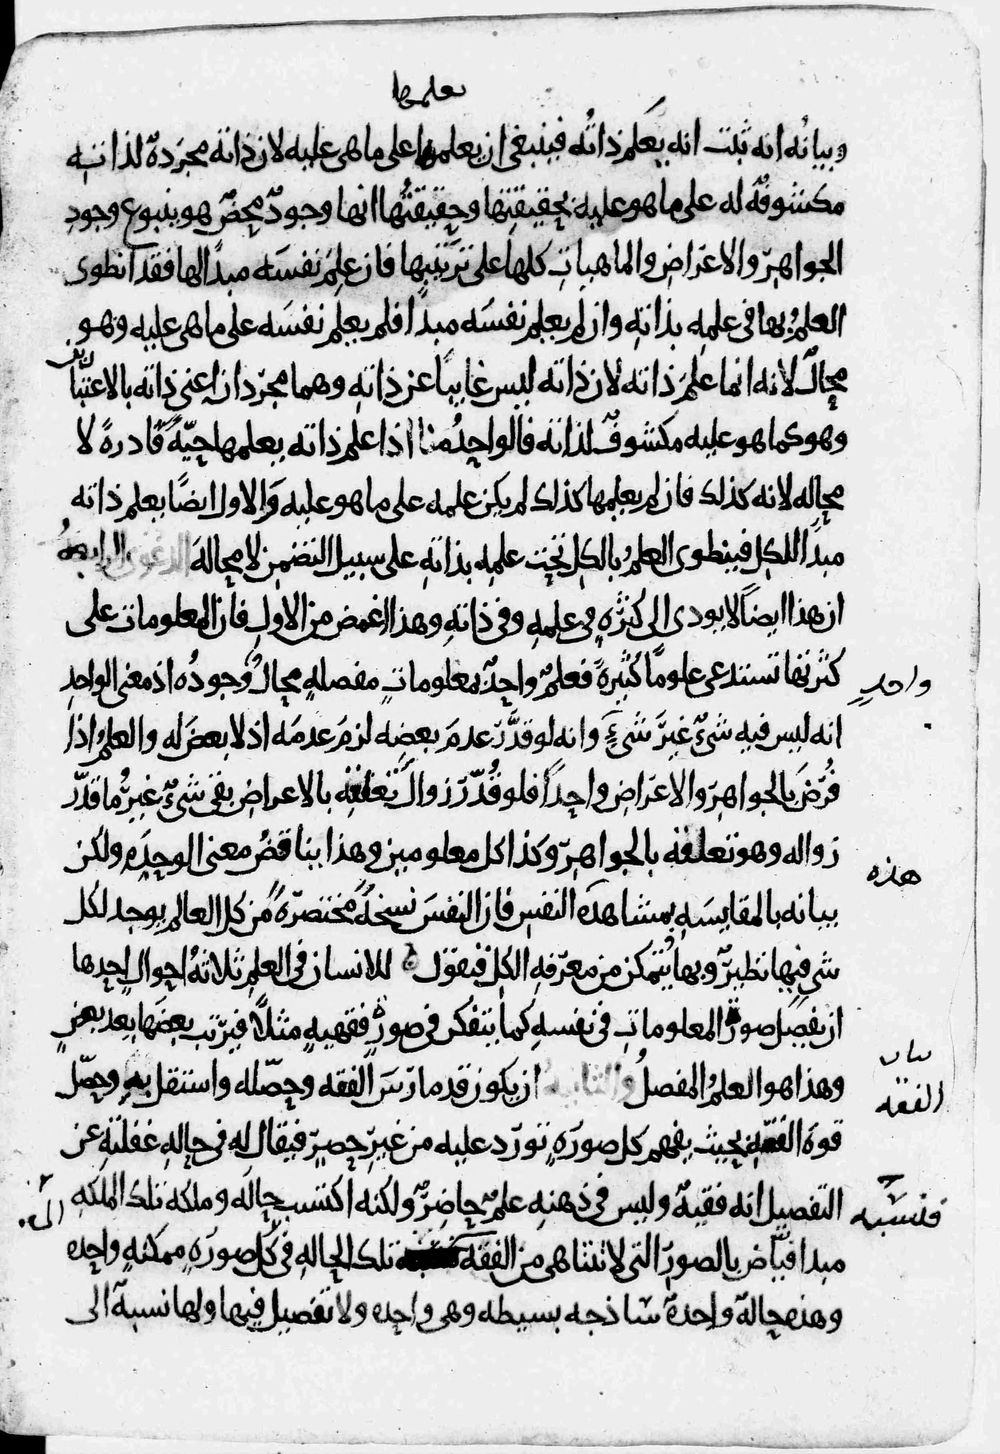 يعلمها
وبيانُه انه ثبت انه يعلم ذاتُه فينبغى ان يعلمها على ما هى عليه لان ذاته مجردة لذاته
مكشوفةٌ له على ما هو عليه بحقيقتها وحقيقتُها انها وجودٌ محضٌ هو ينبوع وجودِ
الجواهرِ والاعراضِ والماهيات كلها على ترتيبها فان علِمَ نفسَه مبدأً لها فقد انطوى
العلمُ بها فى علمِه بذاتهِ وان لم يعلم نفسَه مبدأً فلم يعلم نفسَه على ما هى عليه وهو
محالٌ لانه انما علمَ ذاته لان ذاته ليس غايباً عن ذاتهِ وهما مجردان اعنى ذاته بالاعتبارين
وهو كما هو عليه مكشوفٌ لذاته فالواحدُ منا اذا علم ذاته يعلمها حيّةً قادرةً لا
محاله لانه كذلك فان لم يعلمها كذلك لم يكن علمه على ما هو عليه والاول ايضًا يعلم ذاته
مبدأً للكل فينطوى العلمُ بالكل تحت علمِه بذاتهِ على سبيل التضمن لا محالة الدعوى الرابعةُ
ان هذا ايضاً لا يودى الى كثرهٍ فى علمِه وفى ذاتهِ وهذا اغمض من الاولِ فان المعلومات على
كثرتها تستدعى علومًا كثيرةً فعلمٌ واحدٌ بمعلوماتٍ مفصلهٍ محالٌ وجودُه اذ معنى الواحدِ
واحدٍ
انه ليس فيه شىءٌ غيرَ شىءٍ وانه لو قدّر عدمَ بعضِه لزمَ عدمَه اذ لا بعضَ له والعلمُ اذا
فُرِّضَ بالجواهرِ والاعراضِ واحداً فلو قُدّر زوالُ تعلقِه بالاعراضِ بقى شىءٌ غيرُ ما قدّر
زواله وهو تعلقه بالجواهرِ وكذا كل معلومين وهذا يناقضُ معنى الوحدَهِ ولكن
هذه
بيانه بالمقايسَهِ بمشاهدَه النفسِ فان النفسَ نسخةٌ مختصرةٌ من كل العالم يوجد لكل
شىٍ فيها نظيرٌ وبها يُتمكن من معرفهِ الكل فنقول للانسان فى العلمِ ثلاثةُ احوالٍ احدها
ان يفصل صورَ المعلوماتِ فى نفسهِ كما يتفكر فى صورٍ فقهيهٍ مثلًا فيرتب بعضَها بعد بعضٍ
وهذا هو العلمُ المفصلُ والثانيهُ ان يكون قد مارسَ الفقه وحصّله واستقل به وحصّل
بيان
الفقه
قوهَ الفقهِ بحيث يفهم كل صورَهٍ تورد عليه من غيرِ حصرٍ فيقال له فى حالهِ غفلتهِ عن
التفصيل انه فقيهٌ وليس فى ذهنهِ علمٌ حاضرٌ ولكنه اكتسب حاله وملكه تلك الملكه
فنسبه
مبدا فيّاض بالصورِ التى لا تتناهى من الفقه تلك الحالهِ فى كل صورَهٍ ممكنهٍ واحده
الى
وهذه حالةٌ واحدةٌ ساذجه بسيطه وهى واحده ولا تفصيل فيها ولها نسبةٌ الى